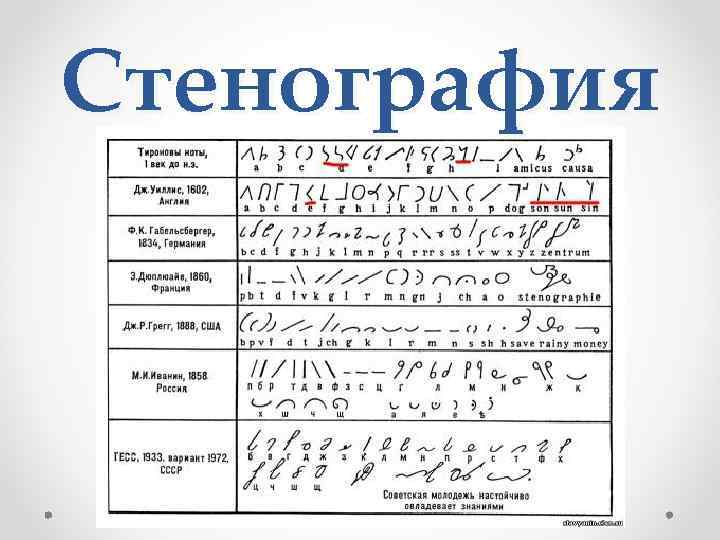 Стенография
Тироновы ноты,
I век до н.э.
a b c d e f g h l amicus causa
Дж.Уиллис, 1602,
Англия
a b c d e f g h i j k l m n o p dog son sun sin
Ф.К. Габельсбергер,
1834, Германия
b c d f g h j k l m n p q r rr s ss t v w x y z zentrum
Э.Дюплюайе, 1860,
Франция
p b t d f v k g l r m n gn j ch a o stenographie
Дж.Р.Грегг, 1888, США
b p v f d t j ch g k l r m n s sh h save rainy money
М.И.Иванин, 1858
Россия
п б р т д в ф з с ц г л м н ж к
х ш ч щ а я е ѣ
ГЕСС, 1933, вариант 1972,
СССР
б в г д ж з к л м н п р с т ф х
ц ч ш щ
Советская молодежь настойчиво
овладевает знаниями